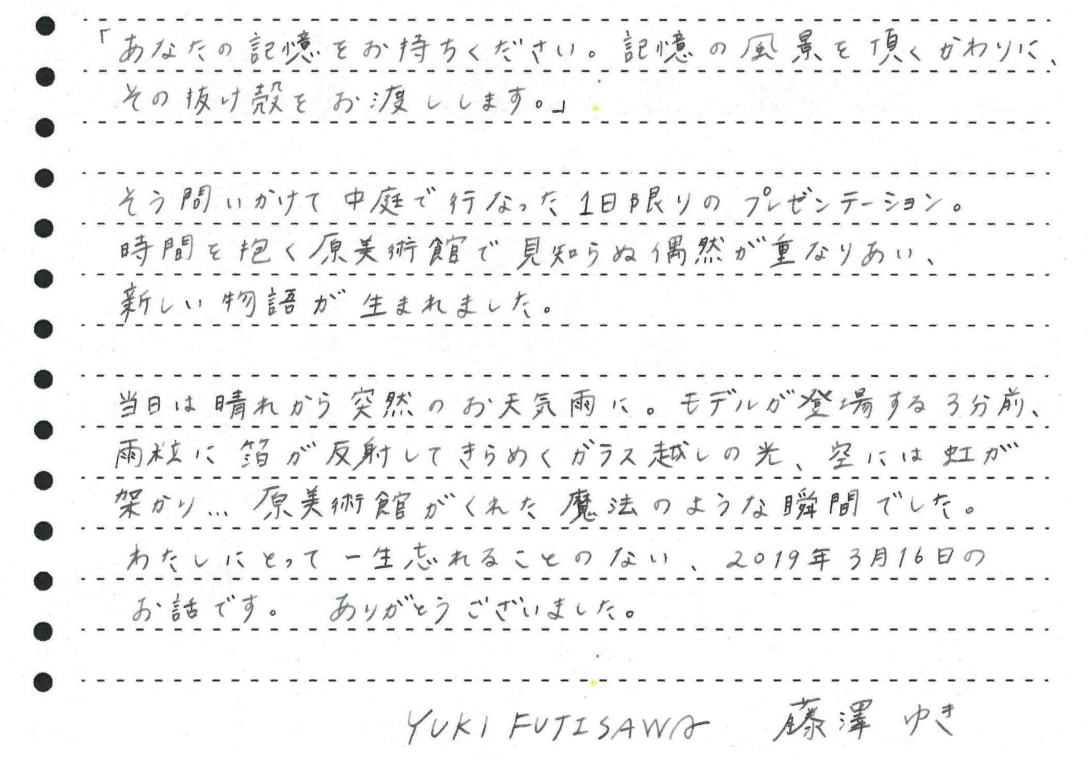 「あなたの記憶をお持ちください。記憶の風景を頂くかわりに、
その抜け殻をお渡しします。」
そう問いかけて中庭で行なった1日限りのプレゼンテーション。
時間を抱く原美術館で見知らぬ偶然が重なりあい、
新しい物語が生まれました。
当日は晴れから突然のお天気雨に。モデルが登場する3分前、
雨粒に箔が反射してきらめくガラス越しの光、空には虹が
架かり... 原美術館がくれた魔法のような瞬間でした。
わたしにとって一生忘れることのない、2019年3月16日の
お話です。 ありがとうございました。
YUKI FUJISAWA 藤澤 ゆき